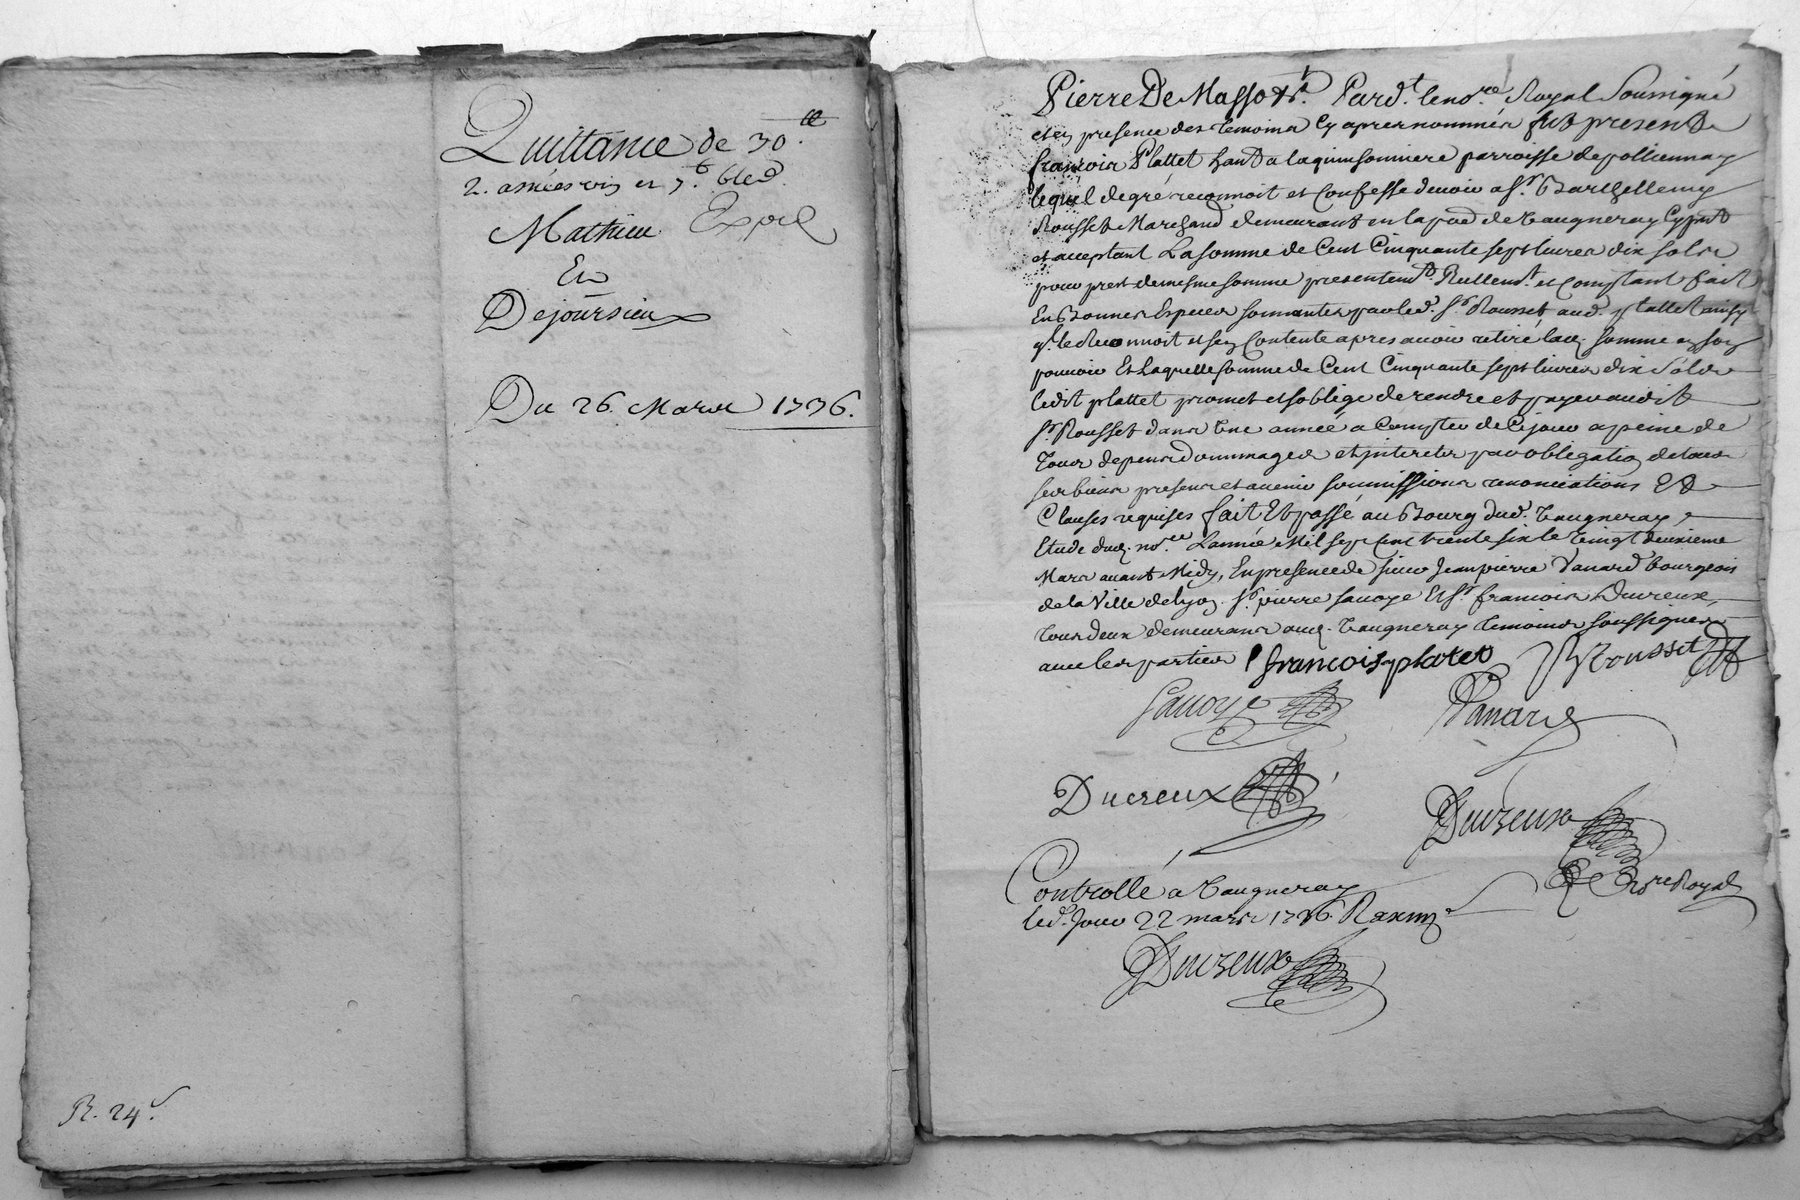 Quittance de 30.ᵗᵗ
2. asnées vin et 7.ᵇ bled.
Mathieu Expel
Et
Dejoursieu
Du 26. Mars 1736.
R. 24ˢ.
Pierre De Masso &ᵃ. Pard.ᵗ le no.ʳᵉ Royal Soussigné
et en presence des temoins cy apres nommés fut present
françois Plattet hant a laquinsonniere parroisse de pollionnay
lequel de gré reconnoit et Confesse devoir a sʳ. Barthellemy
Rousset Marchand demeurant en la pâd de Vaugneray Cy pnt
et acceptant La somme de Cent Cinquante sept livres dix sols
pour prest de mesme somme presentem.ᵗ Reellem.ᵗ et Comptant fait
En Bonnes Especes sonnantes par led. sʳ. Rousset aud. plattet ainsy
q.ˡ le Reconnoit et s'en Contente apres avoir retiré lad. somme en son
pouvoir Et Laquelle somme de Cent Cinquante sept livres dix Sols
ledit plattet promet et s'oblige de rendre et payer audit
sʳ. Rousset dans Une année a Compter de Cejour a peine de
tous depens dommages et interets par obligation de tous
ses biens presens et avenir soumissions renonciations Et
Clauses requises fait Et passé au Bourg dud. Vaugneray
Etude dud. no.ʳᵉ L'année Mil sept Cent trente six le Vingt deuxieme
Mars avant Midy, En presence de sieur Jeanpierre Panard bourgeois
de la Ville de lyon. sʳ. pierre savoye Et sʳ. francois Ducreux,
tous deux demeurans aud. Vaugneray temoins soussignés
avec les parties francois platet Rousset
Savoye Panard
Ducreux Ducreux
Nʳᵉ Royal
Controllé a Vaugneray
led. Jour 22 mars 1736.
Ducreux